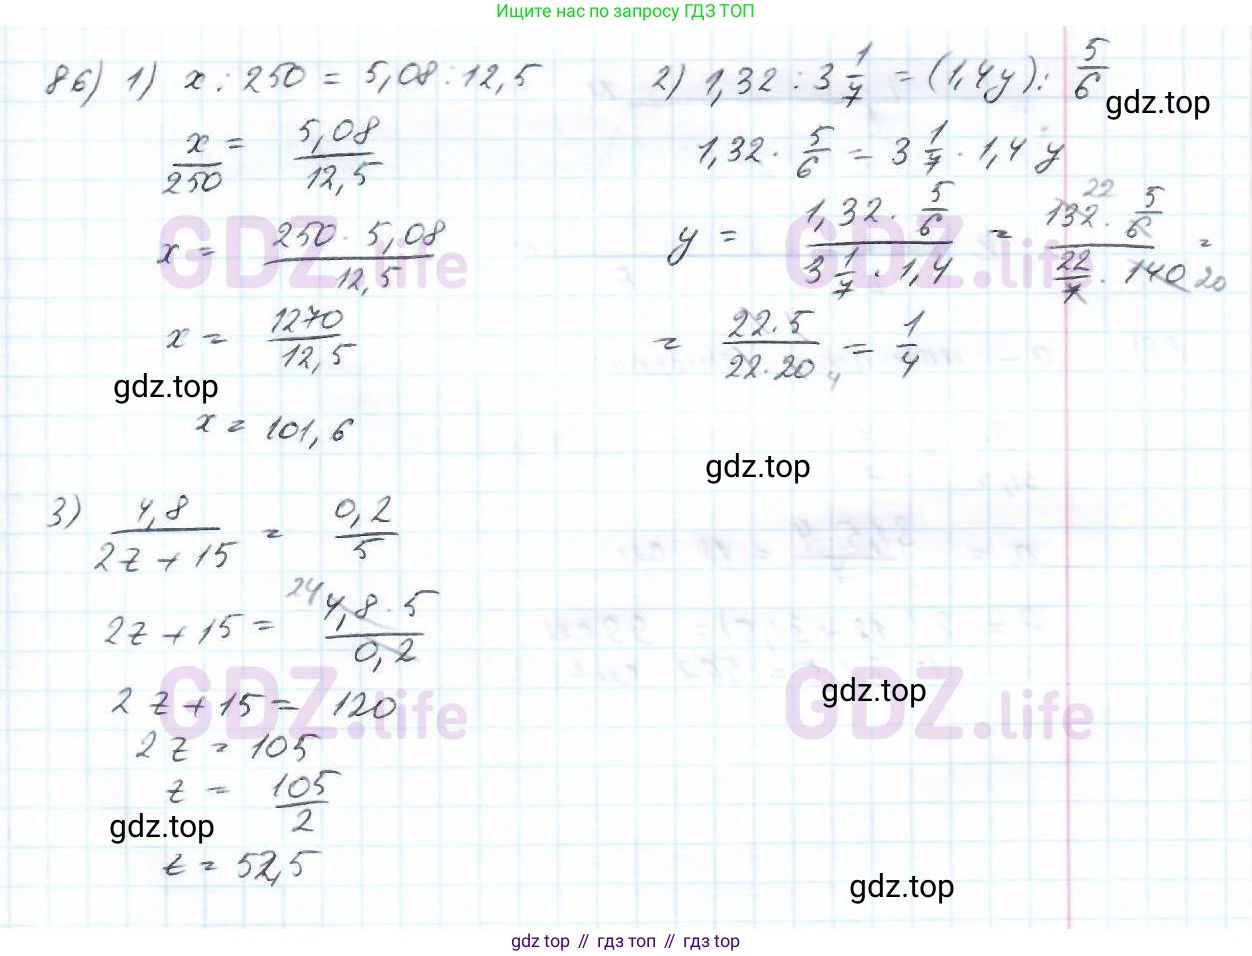 Ищите нас по запросу ГДЗ ТОП
86) 1) x : 250 = 5,08 : 12,5
x/250 = 5,08/12,5
x = 250 · 5,08/12,5
x = 1270/12,5
gdz.top
x = 101,6
2) 1,32 : 3 1/7 = (1,4y) : 5/6
gdz.top
1,32 · 5/6 = 3 1/7 · 1,4 y
y = 1,32 · 5/6 / 3 1/7 · 1,4 = 22 132 · 5/6 / 22/7 · 140 20 =
= 22 · 5/22 · 20 4 = 1/4
gdz.top
3) 4,8/2z + 15 = 0,2/5
2z + 15 = 24 4,8 · 5/0,2
2 z + 15 = 120
2 z = 105
z = 105/2
gdz.top
z = 52,5
gdz.top
gdz.top
GDZ.life
GDZ.life
GDZ.life
GDZ.life
gdz top // гдз топ // gdz top